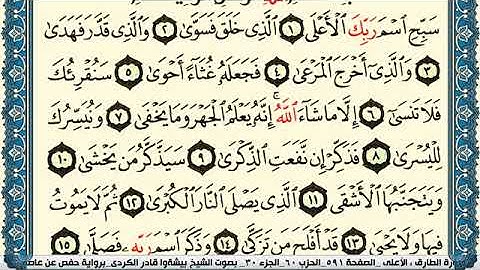 سَبِّحِ ٱسْمَ رَبِّكَ ٱلْأَعْلَى ١ ٱلَّذِى خَلَقَ فَسَوَّىٰ ٢ وَٱلَّذِى قَدَّرَ فَهَدَىٰ
٣ وَٱلَّذِىٓ أَخْرَجَ ٱلْمَرْعَىٰ ٤ فَجَعَلَهُۥ غُثَآءً أَحْوَىٰ ٥ سَنُقْرِئُكَ
فَلَا تَنسَىٰٓ ٦ إِلَّا مَا شَآءَ ٱللَّهُ ۚ إِنَّهُۥ يَعْلَمُ ٱلْجَهْرَ وَمَا يَخْفَىٰ ٧ وَنُيَسِّرُكَ
لِلْيُسْرَىٰ ٨ فَذَكِّرْ إِن نَّفَعَتِ ٱلذِّكْرَىٰ ٩ سَيَذَّكَّرُ مَن يَخْشَىٰ ١٠
وَيَتَجَنَّبُهَا ٱلْأَشْقَى ١١ ٱلَّذِى يَصْلَى ٱلنَّارَ ٱلْكُبْرَىٰ ١٢ ثُمَّ لَا يَمُوتُ
فِيهَا وَلَا يَحْيَىٰ ١٣ قَدْ أَفْلَحَ مَن تَزَكَّىٰ ١٤ وَذَكَرَ ٱسْمَ رَبِّهِۦ فَصَلَّىٰ ١٥
الطارق ، الأعلى _الصفحة ٥٩١_الحزب ٦٠_الجزء ٣٠_ بصوت الشيخ بيشةوا قادر الكردى_برواية حفص عن عاصم